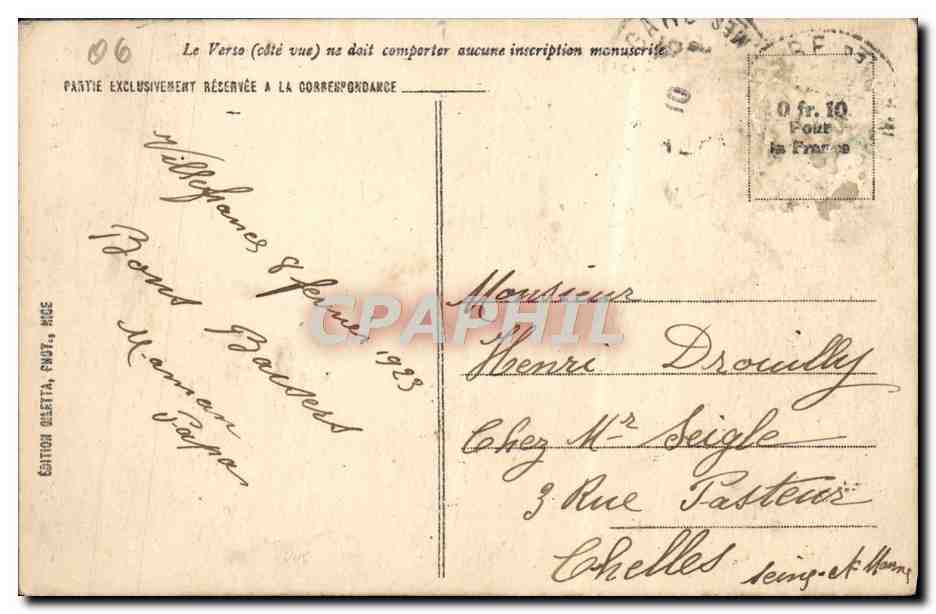 06
Le Verso (côté vue) ne doit comporter aucune inscription manuscrite
PARTIE EXCLUSIVEMENT RÉSERVÉE A LA CORRESPONDANCE
0 fr. 10
Pour
la France
10
Villefranche 8 fevrier 1923
Bons Baisers
Maman
Papa
Monsieur
Henri Drouilly
Chez Mr Seigle
3 Rue Pasteur
Chelles Seine et Marne
ÉDITION GILETTA, PHOT., NICE
CPAPHIL